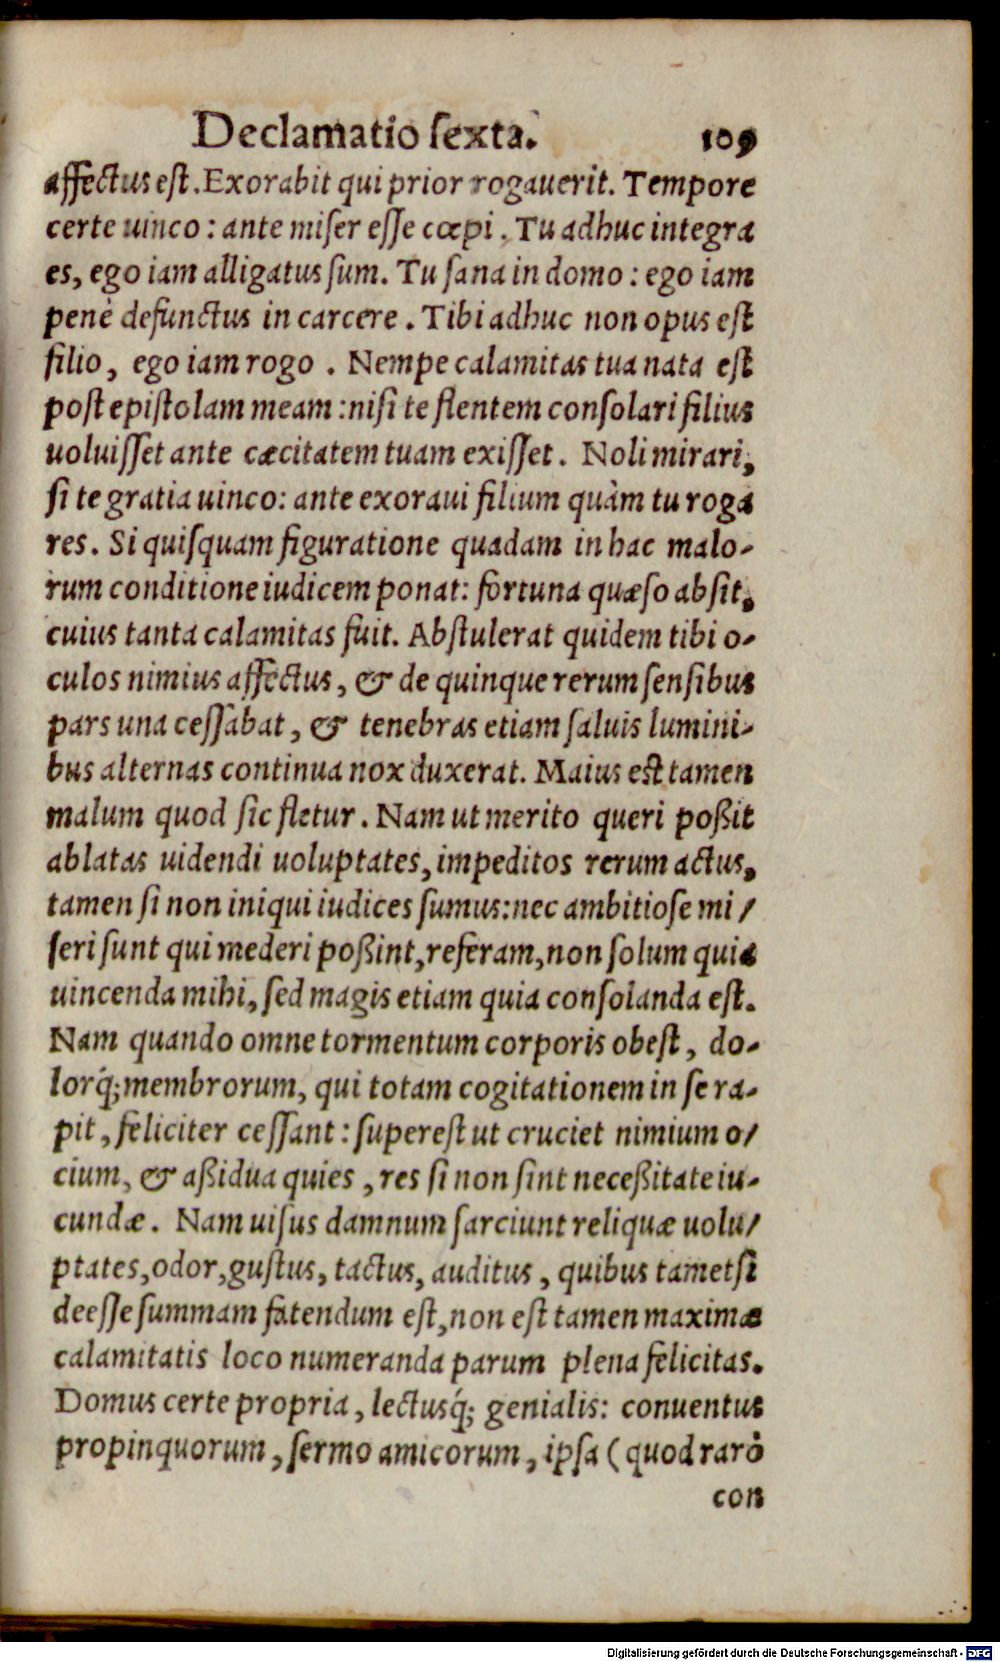 Declamatio ſexta. 109
affectus eſt. Exorabit qui prior rogauerit. Tempore
certe uinco: ante miſer eſſe cœpi. Tu adhuc integra
es, ego iam alligatus ſum. Tu ſana in domo: ego iam
penè defunctus in carcere. Tibi adhuc non opus eſt
filio, ego iam rogo. Nempe calamitas tua nata eſt
poſt epiſtolam meam: niſi te flentem conſolari filius
uoluiſſet ante cæcitatem tuam exiſſet. Noli mirari,
ſi te gratia uinco: ante exoraui filium quàm tu roga
res. Si quiſquam figuratione quadam in hac malo-
rum conditione iudicem ponat: fortuna quæſo abſit,
cuius tanta calamitas fuit. Abſtulerat quidem tibi o-
culos nimius affectus, & de quinque rerum ſenſibus
pars una ceſſabat, & tenebras etiam ſaluis lumini-
bus alternas continua nox duxerat. Maius eſt tamen
malum quod ſic fletur. Nam ut merito queri poßit
ablatas uidendi uoluptates, impeditos rerum actus,
tamen ſi non iniqui iudices ſumus: nec ambitioſe mi/
ſeri ſunt qui mederi poßint, referam, non ſolum quia
uincenda mihi, ſed magis etiam quia conſolanda eſt.
Nam quando omne tormentum corporis obeſt, do-
lorq́; membrorum, qui totam cogitationem in ſe ra-
pit, feliciter ceſſant: ſupereſt ut cruciet nimium o/
cium, & aßidua quies, res ſi non ſint neceßitate iu-
cundæ. Nam uiſus damnum ſarciunt reliquæ uolu/
ptates, odor, guſtus, tactus, auditus, quibus tametſi
deeſſe ſummam fatendum eſt, non eſt tamen maximæ
calamitatis loco numeranda parum plena felicitas.
Domus certe propria, lectusq́; genialis: conuentus
propinquorum, ſermo amicorum, ipſa (quod rarò
con
Digitalisierung gefördert durch die Deutsche Forschungsgemeinschaft - DFG